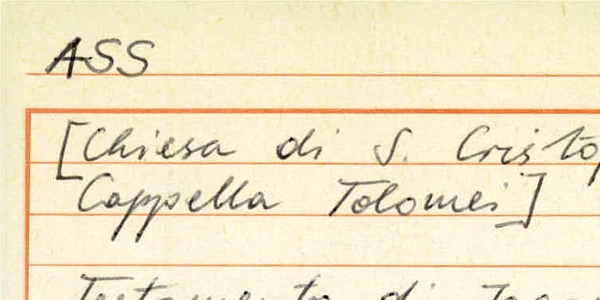 ASS
[Chiesa di S. Cristo
Cappella Tolomei]
Testamento di